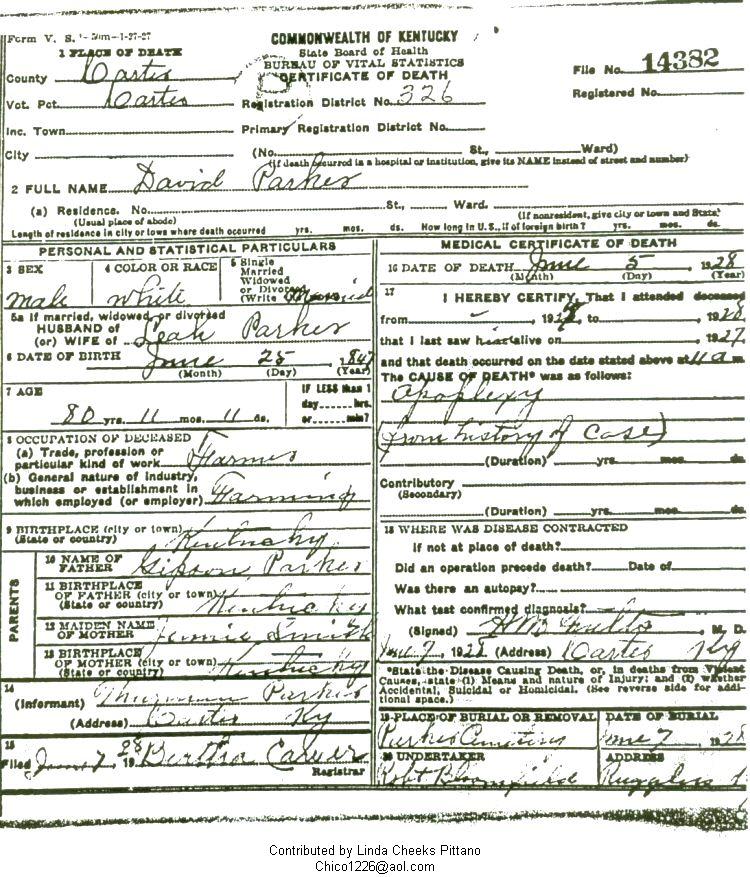 Form V. S. 1-50m-1-27-27
COMMONWEALTH OF KENTUCKY
State Board of Health
BUREAU OF VITAL STATISTICS
CERTIFICATE OF DEATH
File No. 14382
Registered No.
1 PLACE OF DEATH
County Carter
Vot. Pct. Carter Registration District No. 326
Inc. Town Primary Registration District No.
City (No. St., Ward)
(If death occurred in a hospital or institution, give its NAME instead of street and number)
2 FULL NAME David Parker
(a) Residence. No. St., Ward.
(Usual place of abode) (If nonresident, give city or town and State)
Length of residence in city or town where death occurred yrs. mos. ds. How long in U.S., if of foreign birth? yrs. mos. ds.
PERSONAL AND STATISTICAL PARTICULARS
3 SEX 4 COLOR OR RACE 5 Single
Married
Widowed
or Divorced
(Write
Male White Married
5a If married, widowed, or divorced
HUSBAND of
(or) WIFE of Leah Parker
6 DATE OF BIRTH June 25 1847
(Month) (Day) (Year)
7 AGE IF LESS than 1
day hrs.
or min?
80 yrs. 11 mos. 11 ds.
8 OCCUPATION OF DECEASED
(a) Trade, profession or
particular kind of work Farmer
(b) General nature of industry,
business or establishment in
which employed (or employer) Farming
9 BIRTHPLACE (city or town)
(State or country) Kentucky
PARENTS
10 NAME OF
FATHER Gipson Parker
11 BIRTHPLACE
OF FATHER (city or town)
(State or country) Kentucky
12 MAIDEN NAME
OF MOTHER Jennie Smith
13 BIRTHPLACE
OF MOTHER (city or town)
(State or country) Kentucky
14
(Informant) Parker
(Address) Carter Ky
15
Filed June 7, 1928 Bertha Carver
Registrar
MEDICAL CERTIFICATE OF DEATH
16 DATE OF DEATH June 5 1928
(Month) (Day) (Year)
17
I HEREBY CERTIFY, That I attended deceased
from , 192 , to , 1928,
that I last saw him alive on , 1927,
and that death occurred on the date stated above at 11 a m.
The CAUSE OF DEATH* was as follows:
Apoplexy
(from history of case)
(Duration) yrs. mos. ds.
Contributory
(Secondary)
(Duration) yrs. mos. ds.
18 WHERE WAS DISEASE CONTRACTED
if not at place of death?
Did an operation precede death? Date of
Was there an autopsy?
What test confirmed diagnosis?
(Signed) M. D.
June 7, 1928 (Address) Carter Ky
*State the Disease Causing Death, or, in deaths from Violent
Causes, state (1) Means and nature of Injury; and (2) whether
Accidental, Suicidal or Homicidal. (See reverse side for addi-
tional space.)
19 PLACE OF BURIAL OR REMOVAL DATE OF BURIAL
Parker Cemetery June 7, 1928
20 UNDERTAKER ADDRESS
Robt Bloomfield Ruggless
Contributed by Linda Cheeks Pittano
Chico1226@aol.com